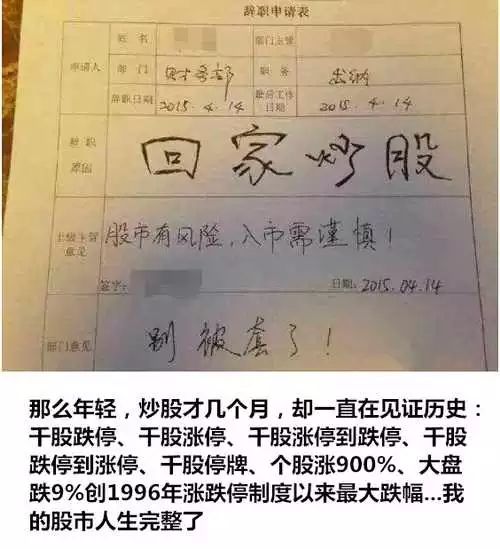 辞职申请表
姓 名
部门主管
申请人
部 门
财务部
职 务
出纳
辞职日期
2015.4.14
最后工作
日期
2015.4.14
辞 职
原因
回家炒股
上级主管
意见
股市有风险,入市需谨慎!
签字:
日期:2015.04.14
部门意见
别被套了!
那么年轻,炒股才几个月,却一直在见证历史:
千股跌停、千股涨停、千股涨停到跌停、千股
跌停到涨停、千股停牌、个股涨900%、大盘
跌9%创1996年涨跌停制度以来最大跌幅...我
的股市人生完整了